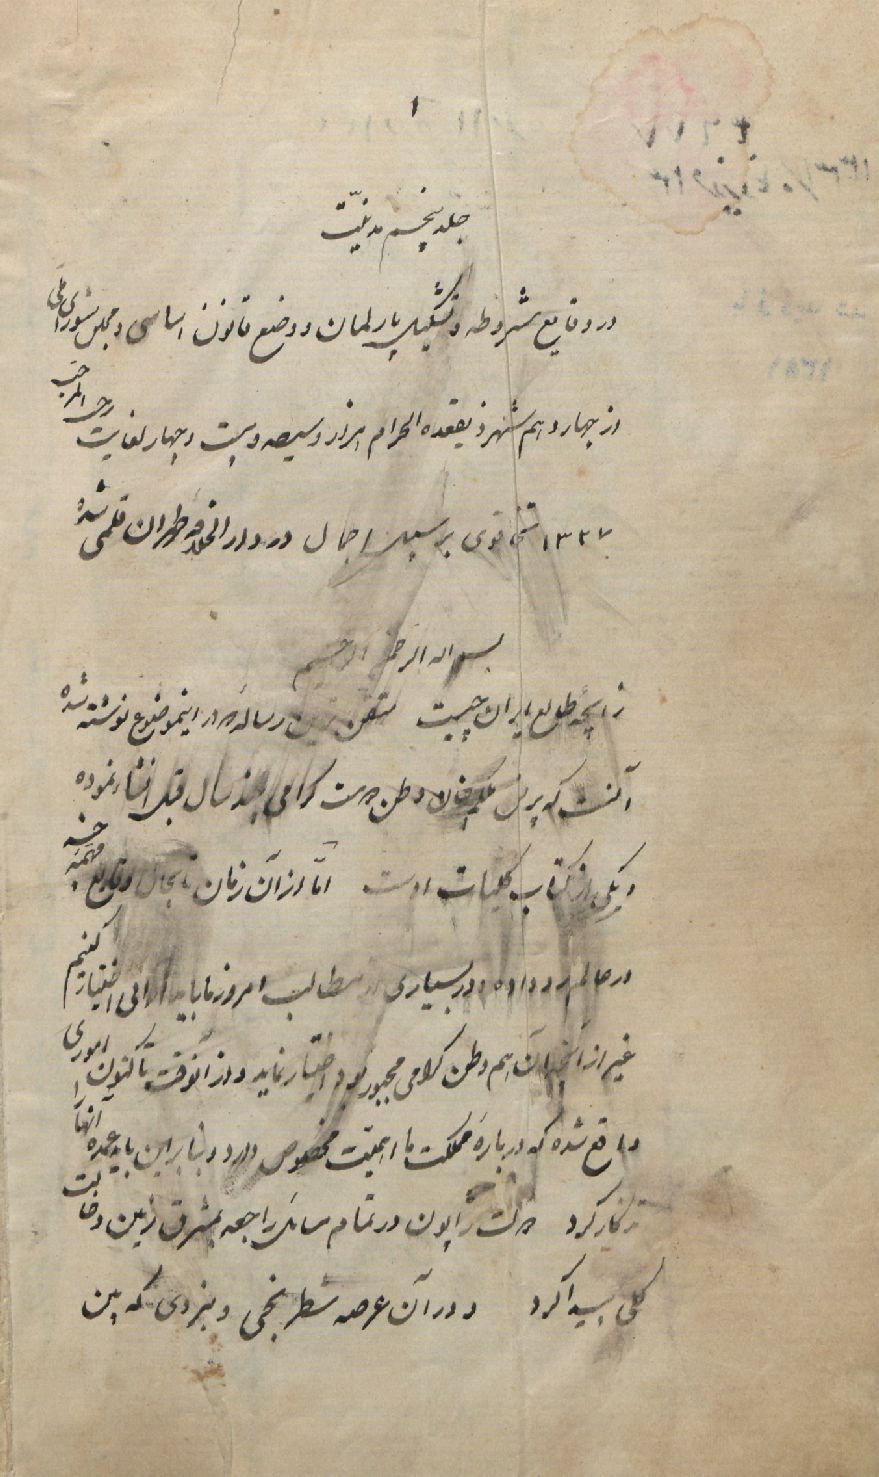 ۱
جلد پنجم مدنیّت
در وقایع مشروطه و تشکیل پارلمان و وضع قانون اساسی و مجلس شورای ملی
از چهاردهم شهر ذیقعده الحرام هزار و سیصد و بیست و چهار لغایت رجب المرجب
۱۳۲۷ بر سبیل اجمال در دار الخلافه طهران قلمی شده
بسم الله الرحمن الرحیم
زایچه طالع ایران چیست متقن ترین رساله که در اینموضوع نوشته شده
آنست که پرنس ملکم خان وطن پرست گرامی چند سال قبل انتشار نموده
و یکی از کتاب کلیات اوست امّا از آن زمان تابحال وقایع مهمّه
در عالم رو داده و در بسیاری از مطالب امروز ما باید آرائی اختیار کنیم
غیر از آنچه آن هم وطن گرامی مجبور بود اختیار نماید و از آنوقت تاکنون اموری
واقع شده که درباره مملکت ما اهمیّت مخصوص دارد و بنابراین باید عمده آنها را
تذکار کرد دولت ژاپون در تمام مسائل راجعه بمشرق زمین دخالت
کلی پیدا کرد و در آن عرصه شطرنجی و نبردی که بین